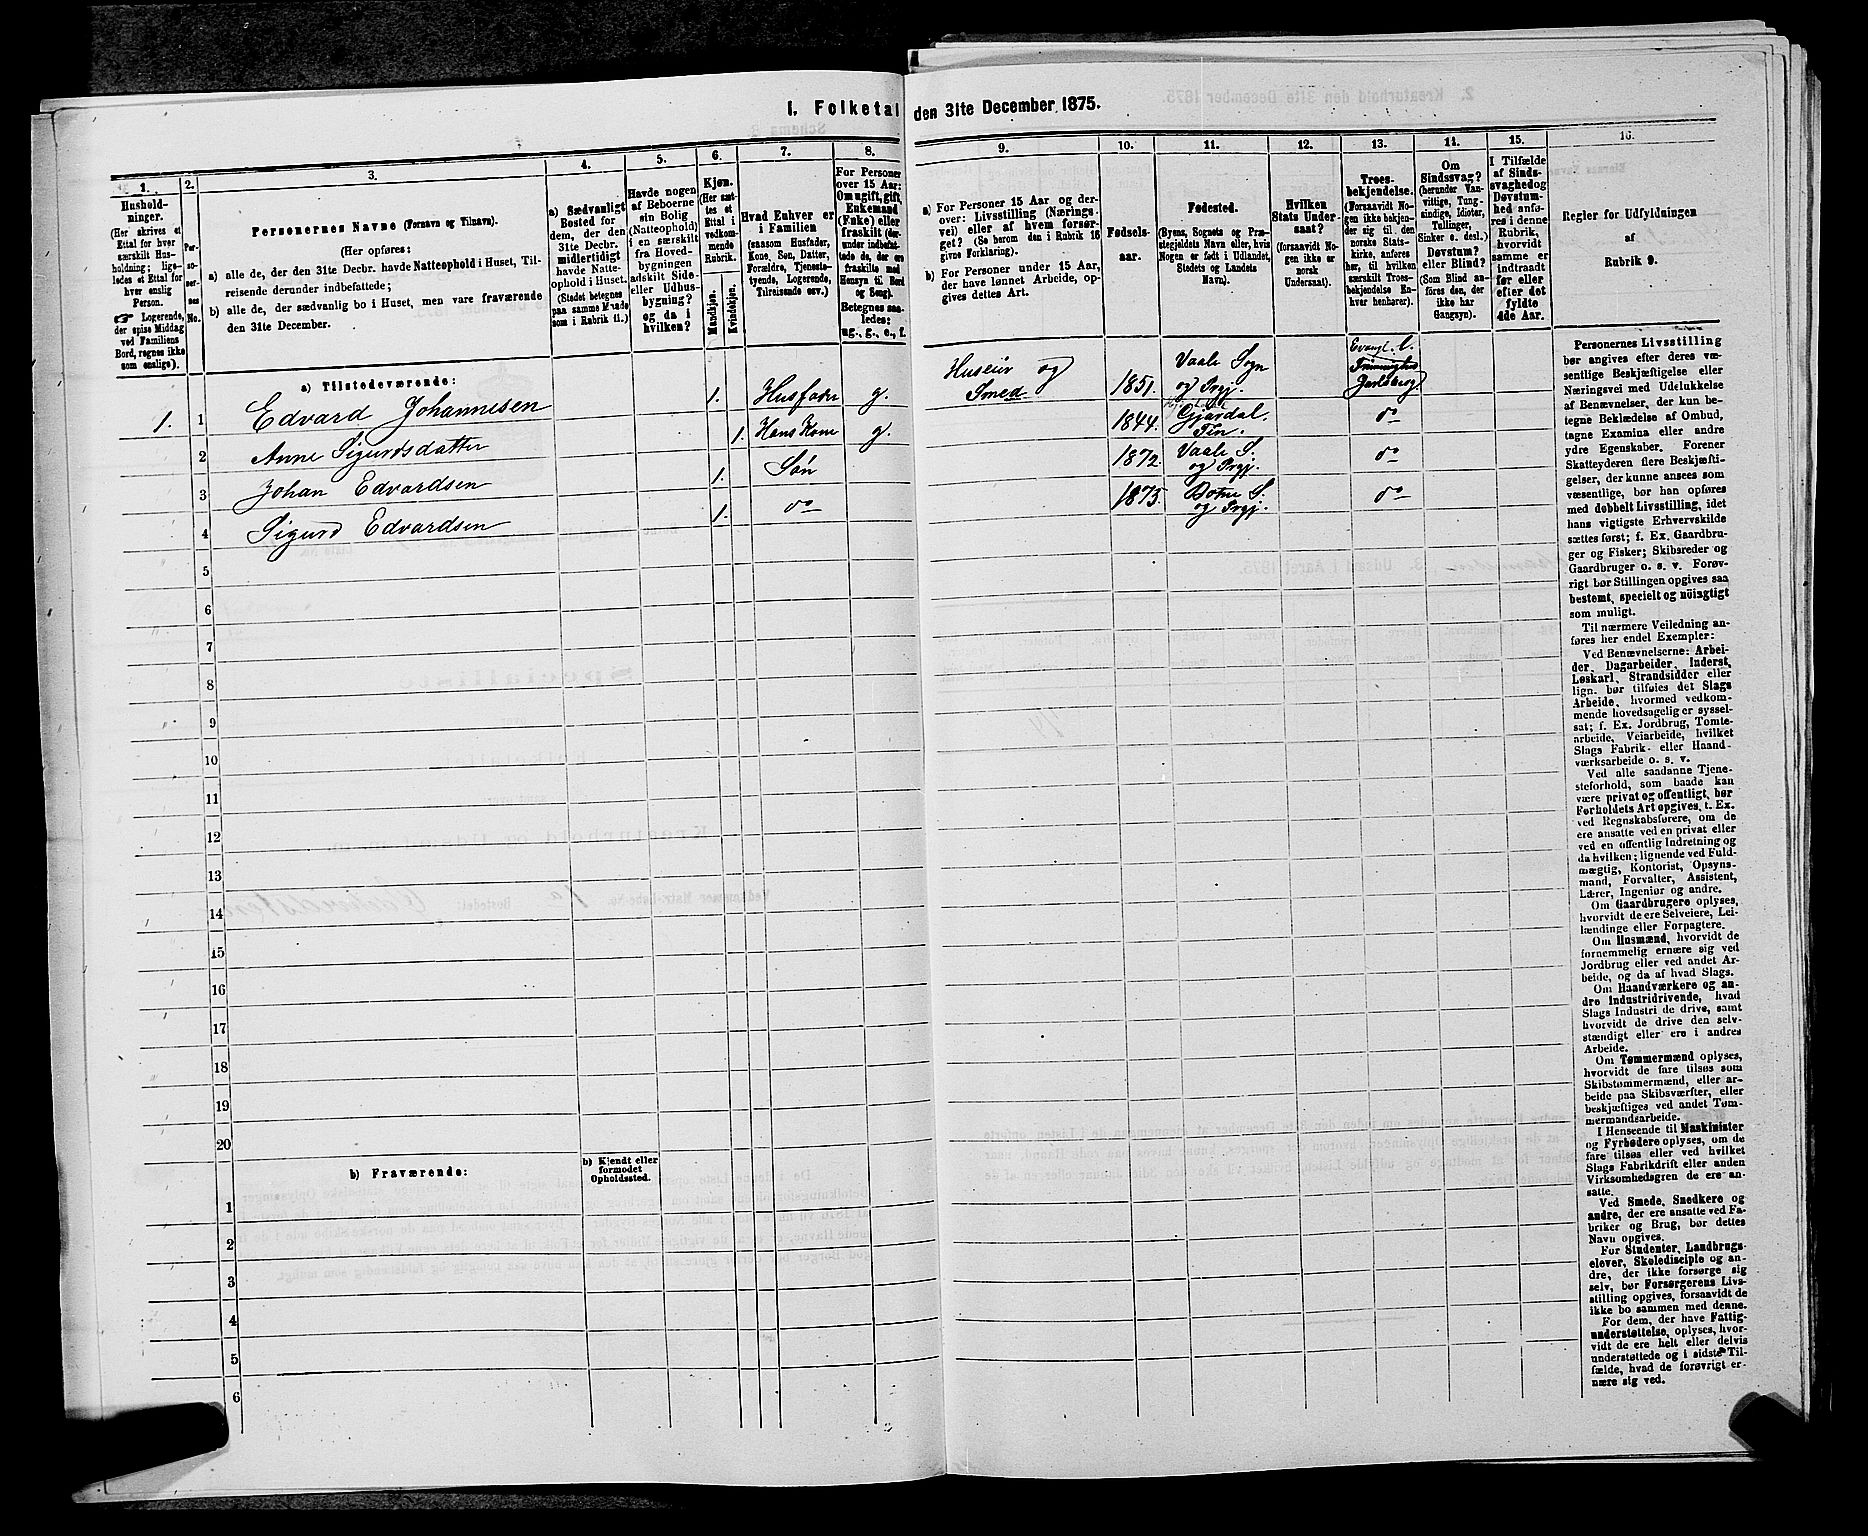 I. Folketal den 31te December 1875.
1.
Hushold-
ninger.
(Her skrives et
Ettal for hver
særskilt Hus-
holdning; lige-
ledes et Ettal for
hver enslig
Person.
☞ Logerende,
der spise Middag
ved Familiens
Bord, regnes ikke
som enslige).
2.
Per-
so-
ner-
nes
No.
3.
Personernes Navne (Fornavn og Tilnavn).
(Her opføres:
a) alle de, der den 31te Decbr. havde Natteophold i Huset, Til-
reisende derunder indbefattede;
b) alle de, der sædvanlig bo i Huset, men vare fraværende
den 31te December.
4.
a) Sædvanligt
Bosted for
dem, der den
31te Decbr.
midlertidigt
havde Natte-
ophold i Huset.
(Stedet betegnes
paa samme Maade
som i Rubrik 11.)
5.
Havde nogen
af Beboerne
sin Bolig
(Natteophold)
i en særskilt
fra Hoved-
bygningen
adskilt Side-
eller Udhus-
bygning?
og da i
hvilken?
6.
Kjøn.
(Her sæt-
tes et
Ettal i
vedkom-
mende
Rubrik.
Mandkjøn.
Kvindekjøn.
7.
Hvad Enhver er
i Familien
(saasom Husfader,
Kone, Søn, Datter,
Forældre, Tjeneste-
tyende, Logerende,
Tilreisende osv.)
8.
For Personer
over 15 Aar:
Om ugift, gift,
Enkemand
(Enke) eller
fraskilt (der-
under indbefat-
tede de, der ere
fraskilte med
Hensyn til Bord
og Seng).
Betegnes saa-
ledes:
ug., g., e., f.
9.
a) For Personer 15 Aar og der-
over: Livsstilling (Nærings-
vei) eller af hvem forsør-
get? (Se herom den i Rubrik 16
givne Forklaring).
b) For Personer under 15 Aar,
der have lønnet Arbeide, op-
gives dettes Art.
10.
Fødsels-
aar.
11.
Fødested.
(Byens, Sognets og Præ-
stegjeldets Navn eller, hvis
Nogen er født i Udlandet,
Stedets og Landets
Navn).
12.
Hvilken
Stats Under-
saat?
(forsaavidt No-
gen ikke er
norsk
Undersaat).
13.
Troes-
bekjendelse.
(Forsaavidt No-
gen ikke bekjen-
der sig til den
norske Stats-
kirke, anføres
her, til hvilken
særskilt Troes-
bekjendelse En-
hver henhører).
14.
Om
Sindssvag?
(herunder Van-
vittige, Tung-
sindige, Idioter,
Tullinger,
Sinker o. desl.)
Døvstum?
eller Blind?
(Som Blind an-
føres den, der
ikke har
Gangsyn).
15.
I Tilfælde
af Sinds-
svaghed og
Døvstum-
hed anfø-
res i denne
Rubrik,
hvorvidt
samme er
indtraadt
før eller
efter det
fyldte
4de Aar.
16.
Regler for Udfyldningen
af
Rubrik 9.
a) Tilstedeværende:
1. 1 Edvard Johannesen 1. Husfader g. Huseier og Smed 1851. Vaale Sogn og Prgj. Evangl. L. Trimenighed Jarlsberg
2 Anne Sigurdsdatter 1. Hans Kone g. 1844. Gjøsdal. Tin. do
3 Johan Edvardsen 1. Søn 1872. Vaale S. og Prgj. do
4 Sigurd Edvardsen 1. do 1875. Botne S. og Prgj. do
5
6
7
8
9
10
11
12
13
14
15
16
17
18
19
20
b) Fraværende:
b) Kjendt eller
formodet
Opholdssted.
1
2
3
4
5
6
Personernes Livsstilling
bør angives efter deres væ-
sentlige Beskjæftigelse eller
Næringsvei med Udelukkelse
af Benævnelser, der kun be-
tegne Beklædelse af Ombud,
tagne Examina eller andre
ydre Egenskaber. Forener
Skatteyderen flere Beskjæfti-
gelser, der kunne ansees som
væsentlige, bør han opføres
med dobbelt Livsstilling, idet
hans vigtigste Erhvervskilde
sættes først; f. Ex. Gaardbru-
ger og Fisker; Skibsreder og
Gaardbruger o. s. v. Forøv-
rigt bør Stillingen opgives saa
bestemt, specielt og nöiagtigt
som muligt.
Til nærmere Veiledning an-
føres her endel Exempler:
Ved Benævnelserne: Arbei-
der, Dagarbeider, Inderst,
Løskarl, Strandsidder eller
lign. bør tilføies det Slags
Arbeide, hvormed vedkom-
mende hovedsagelig er syssel-
sat; f. Ex. Jordbrug, Tomte-
arbeide, Veiarbeide, hvilket
Slags Fabrik- eller Haand-
værksarbeide o. s. v.
Ved alle saadanne Tjene-
steforhold, som baade kan
være privat og offentligt, bør
Forholdets Art opgives, t. Ex.
ved Regnskabsførere, om de
ere ansatte ved en privat eller
ved en offentlig Indretning og
da hvilken; lignende ved Fuld-
mægtig, Kontorist, Opsyns-
mand, Forvalter, Assistent,
Lærer, Ingeniør og andre.
Om Gaardbrugere oplyses,
hvorvidt de ere Selveiere, Lei-
lændinge eller Forpagtere.
Om Husmænd, hvorvidt de
fornemmelig ernære sig ved
Jordbrug eller ved andet Ar-
beide, og da af hvad Slags.
Om Haandværkere og an-
dre Industridrivende, hvad
Slags Industri de drive, samt
hvorvidt de drive den selv-
stændigt eller ere i andres
Arbeide.
Om Tømmermænd oplyses,
hvorvidt de fare tilsøs som
Skibstømmermænd, eller ar-
beide paa Skibsværfter, eller
beskjæftiges ved andet Tøm-
mermandsarbeide.
I Henseende til Maskinister
og Fyrbødere oplyses, om de
fare tilsøs eller ved hvilket
Slags Fabrikdrift eller anden
Virksomhedsgren de ere an-
satte.
Ved Smede, Snedkere og
andre, der ere ansatte ved Fa-
briker og Brug, bør dettes
Navn opgives.
For Studenter, Landbrugs-
elever, Skoledisciple og an-
dre, der ikke forsørge sig
selv, bør Forsørgerens Livs-
stilling opgives, forsaavidt de
ikke bo sammen med denne.
For dem, der have Fattig-
understøttelse, oplyses, hvor-
vidt de ere helt eller delvis
understøttede og i sidste Til-
fælde, hvad de forøvrigt er-
nære sig ved.